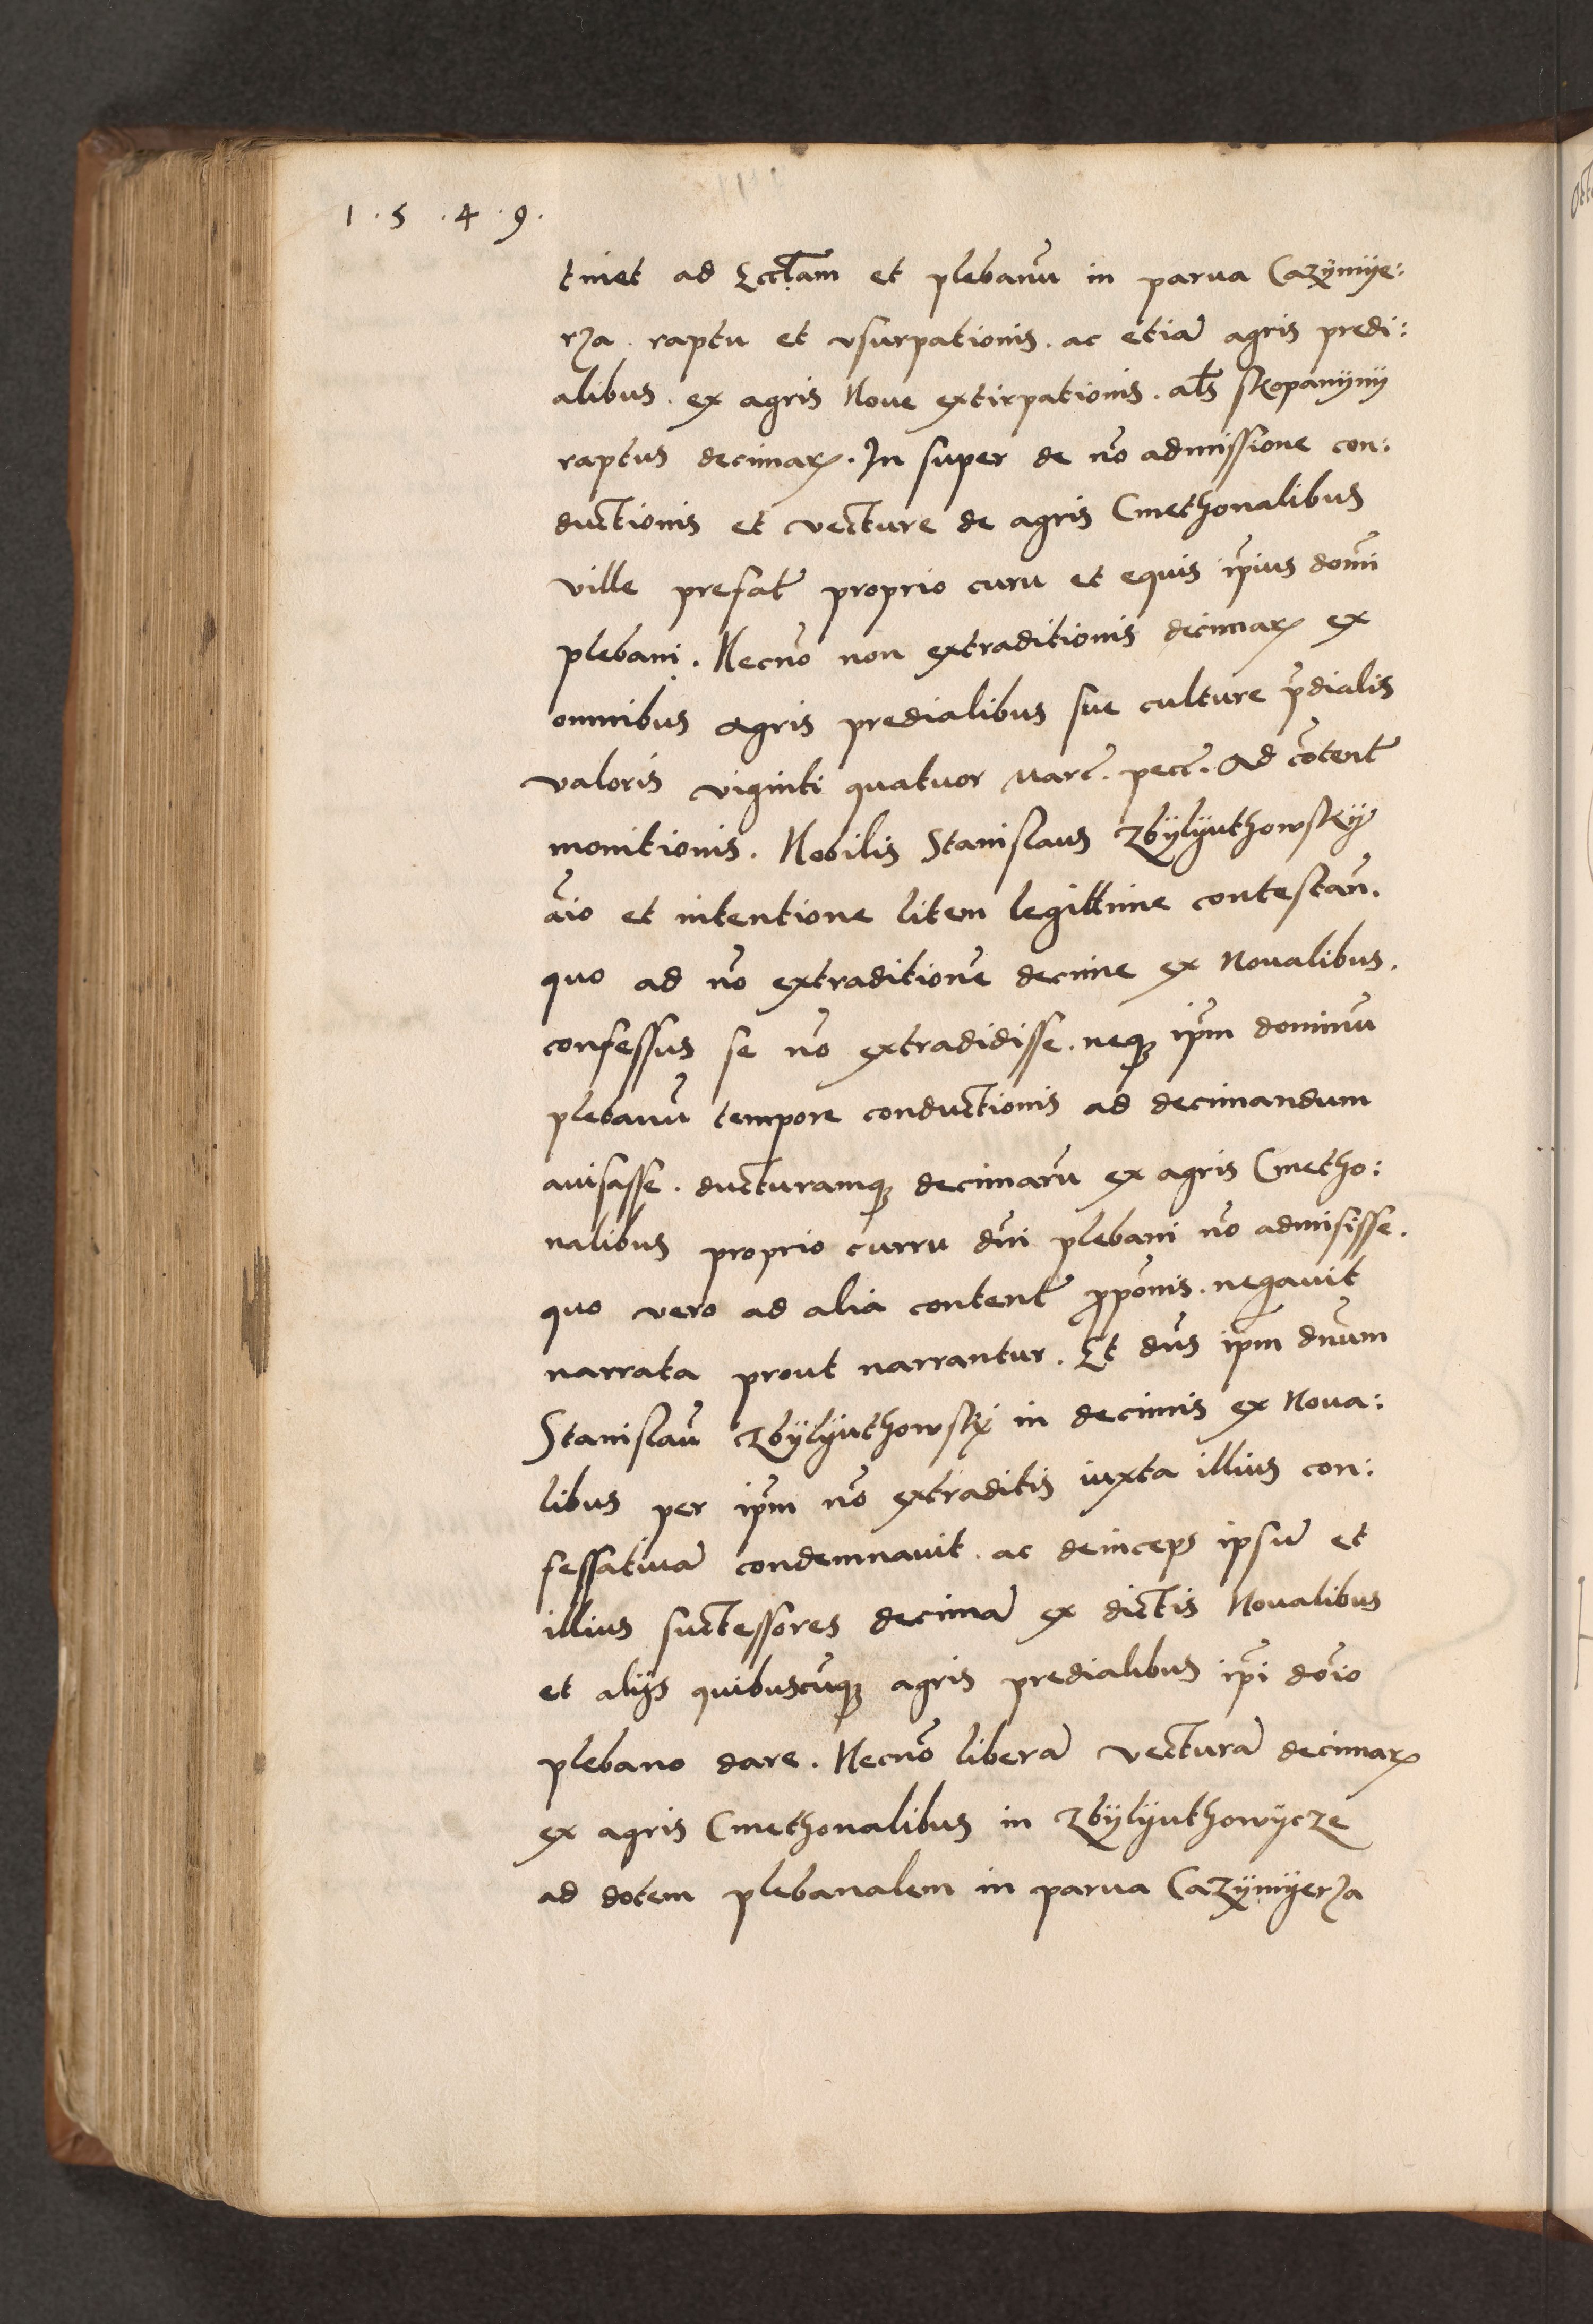 1 . 5 . 4 . 9 .
tinet ad Eccl̄am et plebanū in parua Cazymÿe:
rza . raptu et vsurpationis . ac etiā agris predi:
alibus . ex agris Noue extirpationis . al̄s skopanÿnÿ
raptus decimaꝝ . In super de nō admissione con:
ductionis et vecture de agris Cmethonalibus
ville prefat̄ proprio curu et equis ip̄ius domī
plebani . Necnō non extraditionis decimaꝝ ex
omnibus agris predialibus sue culture p̄dialis
valoris viginti quatuor Marc̄ . pecc̄ . Ad cōtent̄
monitionis . Nobilis Stanislaus Zbÿlÿuthowskÿ
aīo et intentione litem legittime contestan̄ .
quo ad nō extraditionē decime ex Noualibus .
confessus se nō extradidisse . neqꝫ ip̄m dominū
plebanū tempore conductionis ad decimandum
auisasse . ducturamqꝫ decimarū ex agris Cmetho:
nalibus proprio curru dn̄i plebani nō admisisse .
quo vero ad alia content̄ p̱ponīs . negauit
narrata prout narrantur . Et dn̄s ip̄m dn̄um
Stanislaū Zbÿlÿuthowskÿ in decimis ex Noua:
libus per ip̄m nō extraditis iuxta illius con:
fessatiuā condemnauit . ac deinceps ipsū et
illius suctessores decimā ex dictis Noualibus
et alijs quibuscūqꝫ agris predialibus ip̄i dōio
plebano dare . Necnō liberā vecturā decimaꝝ
ex agris Cmethonalibus in Zbÿlÿuthowÿcze
ad dotem plebanalem in parua Cazÿmÿerza